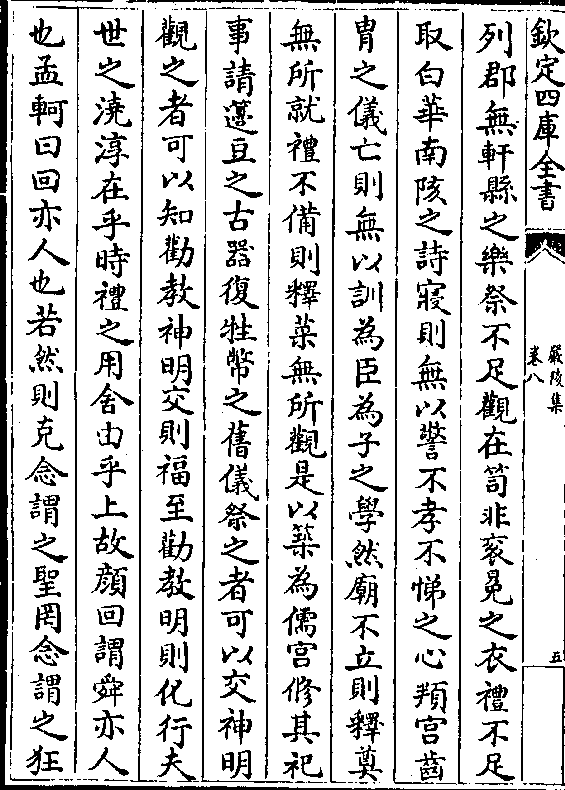 欽定四庫全書
嚴陵集
卷八
五
列郡無軒縣之樂祭不足觀在笥非衮冕之衣禮不足
取白華南陔之詩寢則無以警不孝不悌之心頖宫齒
胄之儀亡則無以訓為臣為子之學然廟不立則釋奠
無所就禮不備則釋菜無所觀是以築為儒宫修其祀
事請籩豆之古器復牲幣之舊儀祭之者可以交神明
觀之者可以知勸教神明交則福至勸教明則化行夫
世之澆淳在乎時禮之用舍由乎上故顔回謂舜亦人
也孟軻曰回亦人也若然則克念謂之聖罔念謂之狂